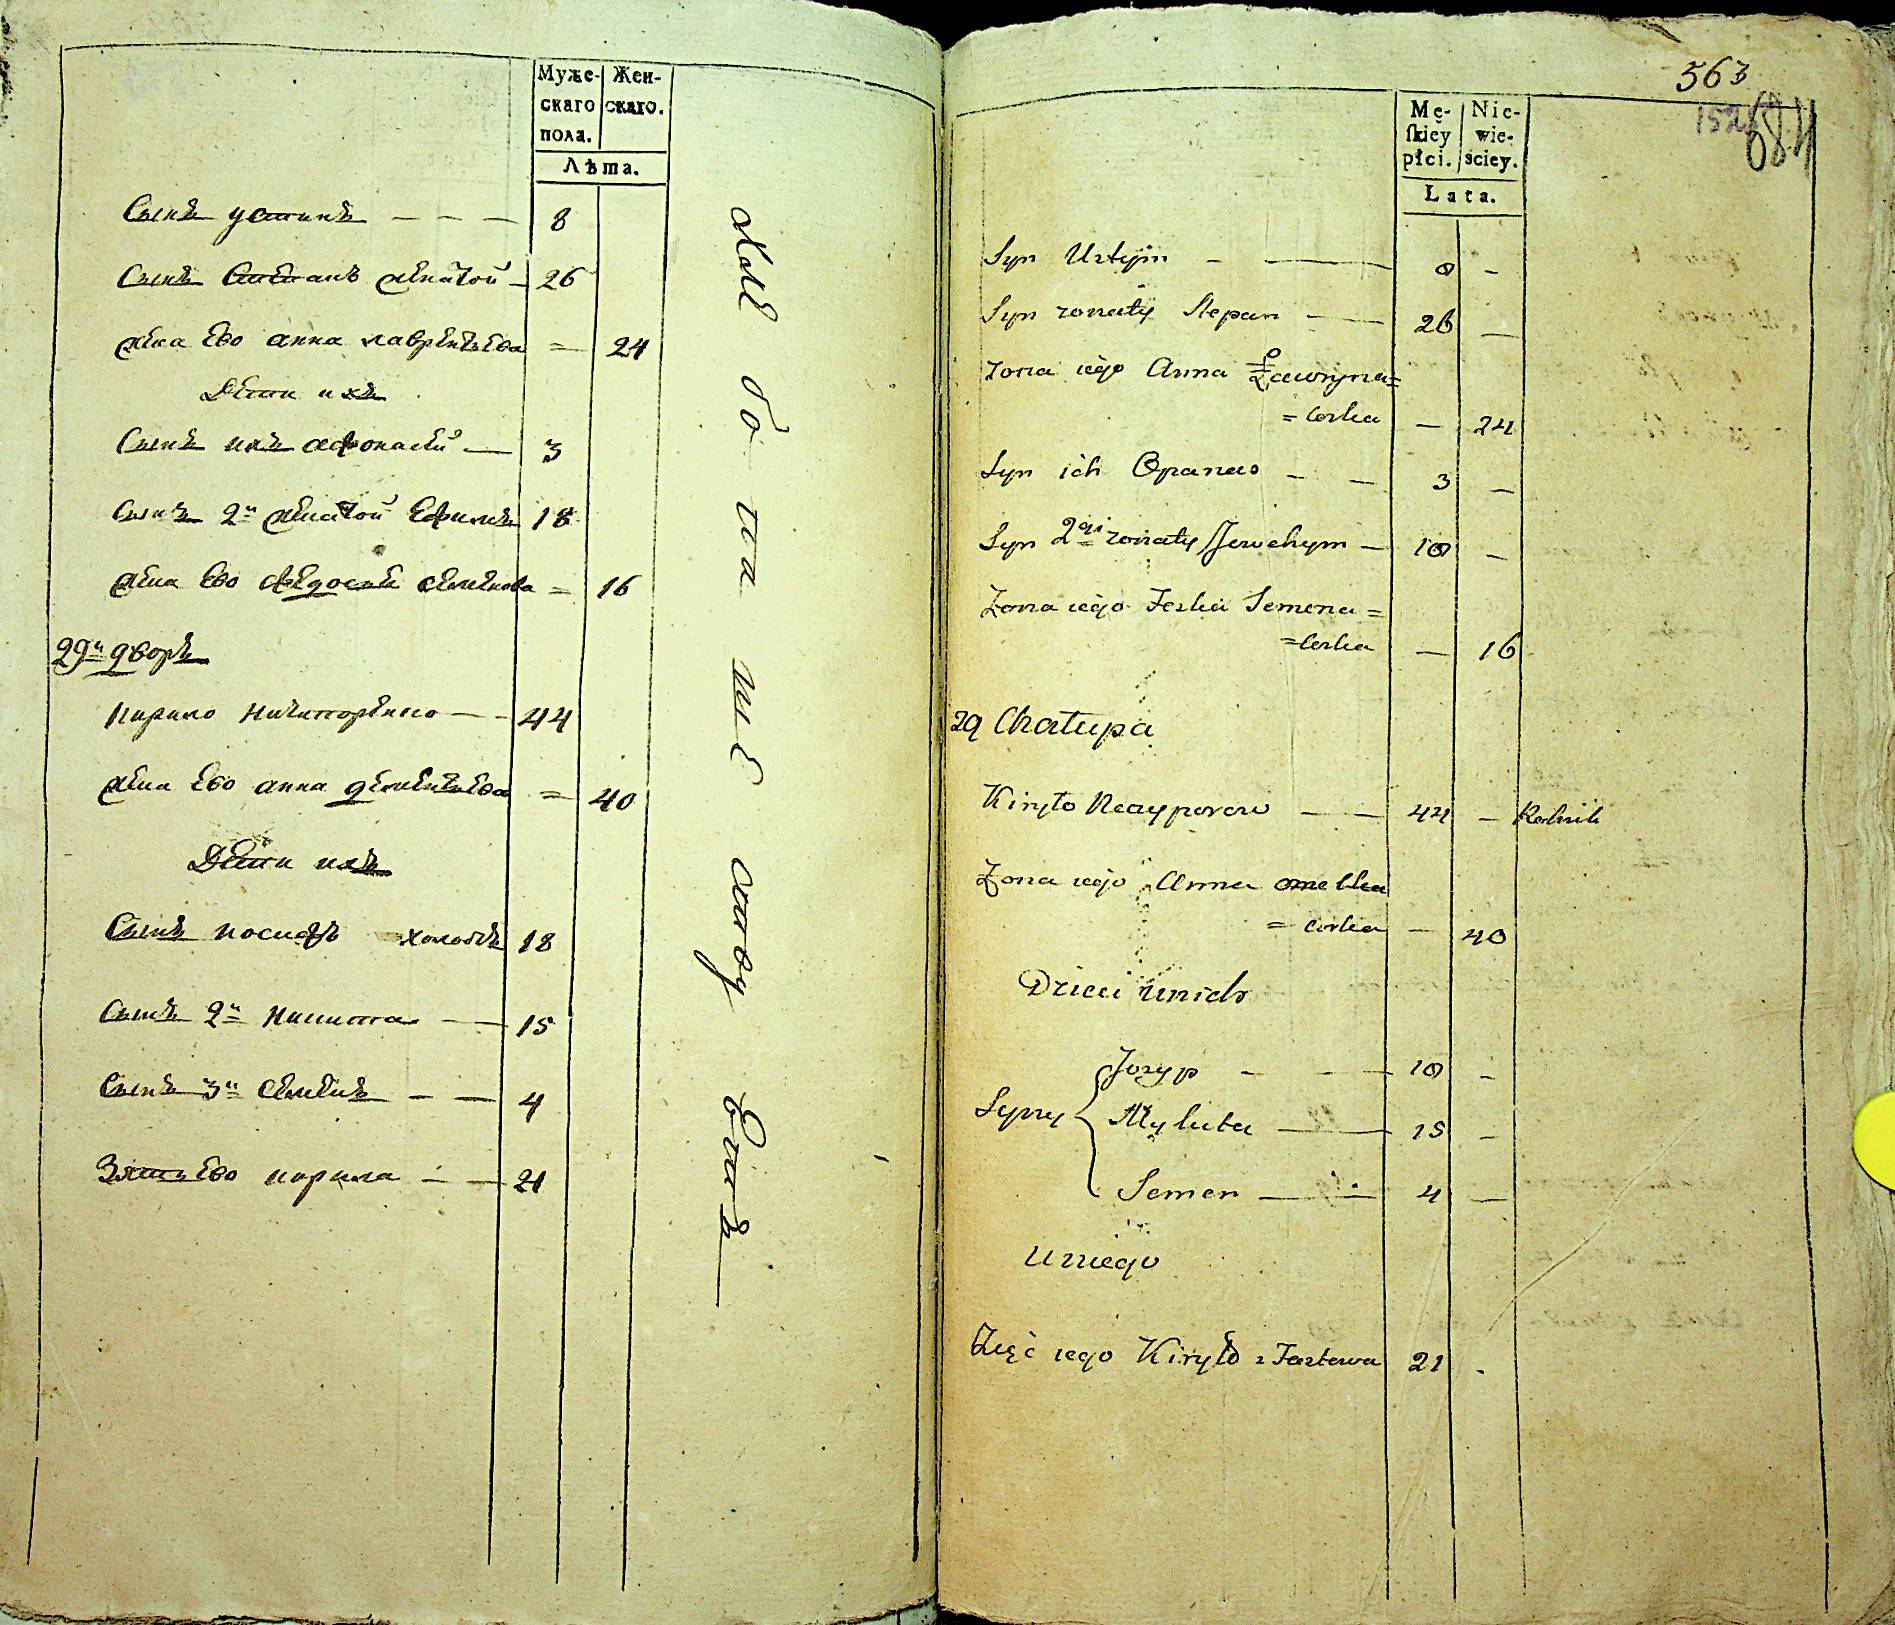 Муже-
скаго
пола.
Жен-
скаго.
Лѣта.
Сынъ устинъ — — — 8
Сынъ Степанъ женатой — 26
жена Ево анна лаврентьева = 24
Дети ихъ
Сынъ ихъ афонасей — 3
Сынъ 2й женатой Ефимъ 18
жена Ево федосья семенова = 16
29й дворъ
Кирило Ничипоренко — — 44
жена Ево анна дементьева = 40
Дети ихъ
Сынъ иосифъ холостъ 18
Сынъ 2й никита — 15
Сынъ 3й Семенъ — — 4
Зять Ево кирила — — 21
563
152
684
Mę-
skiey
płci.
Nie-
wie-
sciey.
Lata.
Syn Ustym — — 8 —
Syn zonaty Stepan — 26 —
Zona iego Anna Ławryna=
= corka — 24
Syn ich Opanas — — 3 —
Syn 2gi zonaty Jewchym — 18 —
Zona iego Feśka Semena=
=corka — 16
29 Chałupa
Kiryło Neczyporow — — 44 — Rolnik
Zona iego Anna omelka
= corka — 40
Dzieci unich
Syny
Jozyp — — — 18 —
Mykita — 15 —
Semen — — 4 —
Uniego
Zięć iego Kiryło z Fastowa 21 -